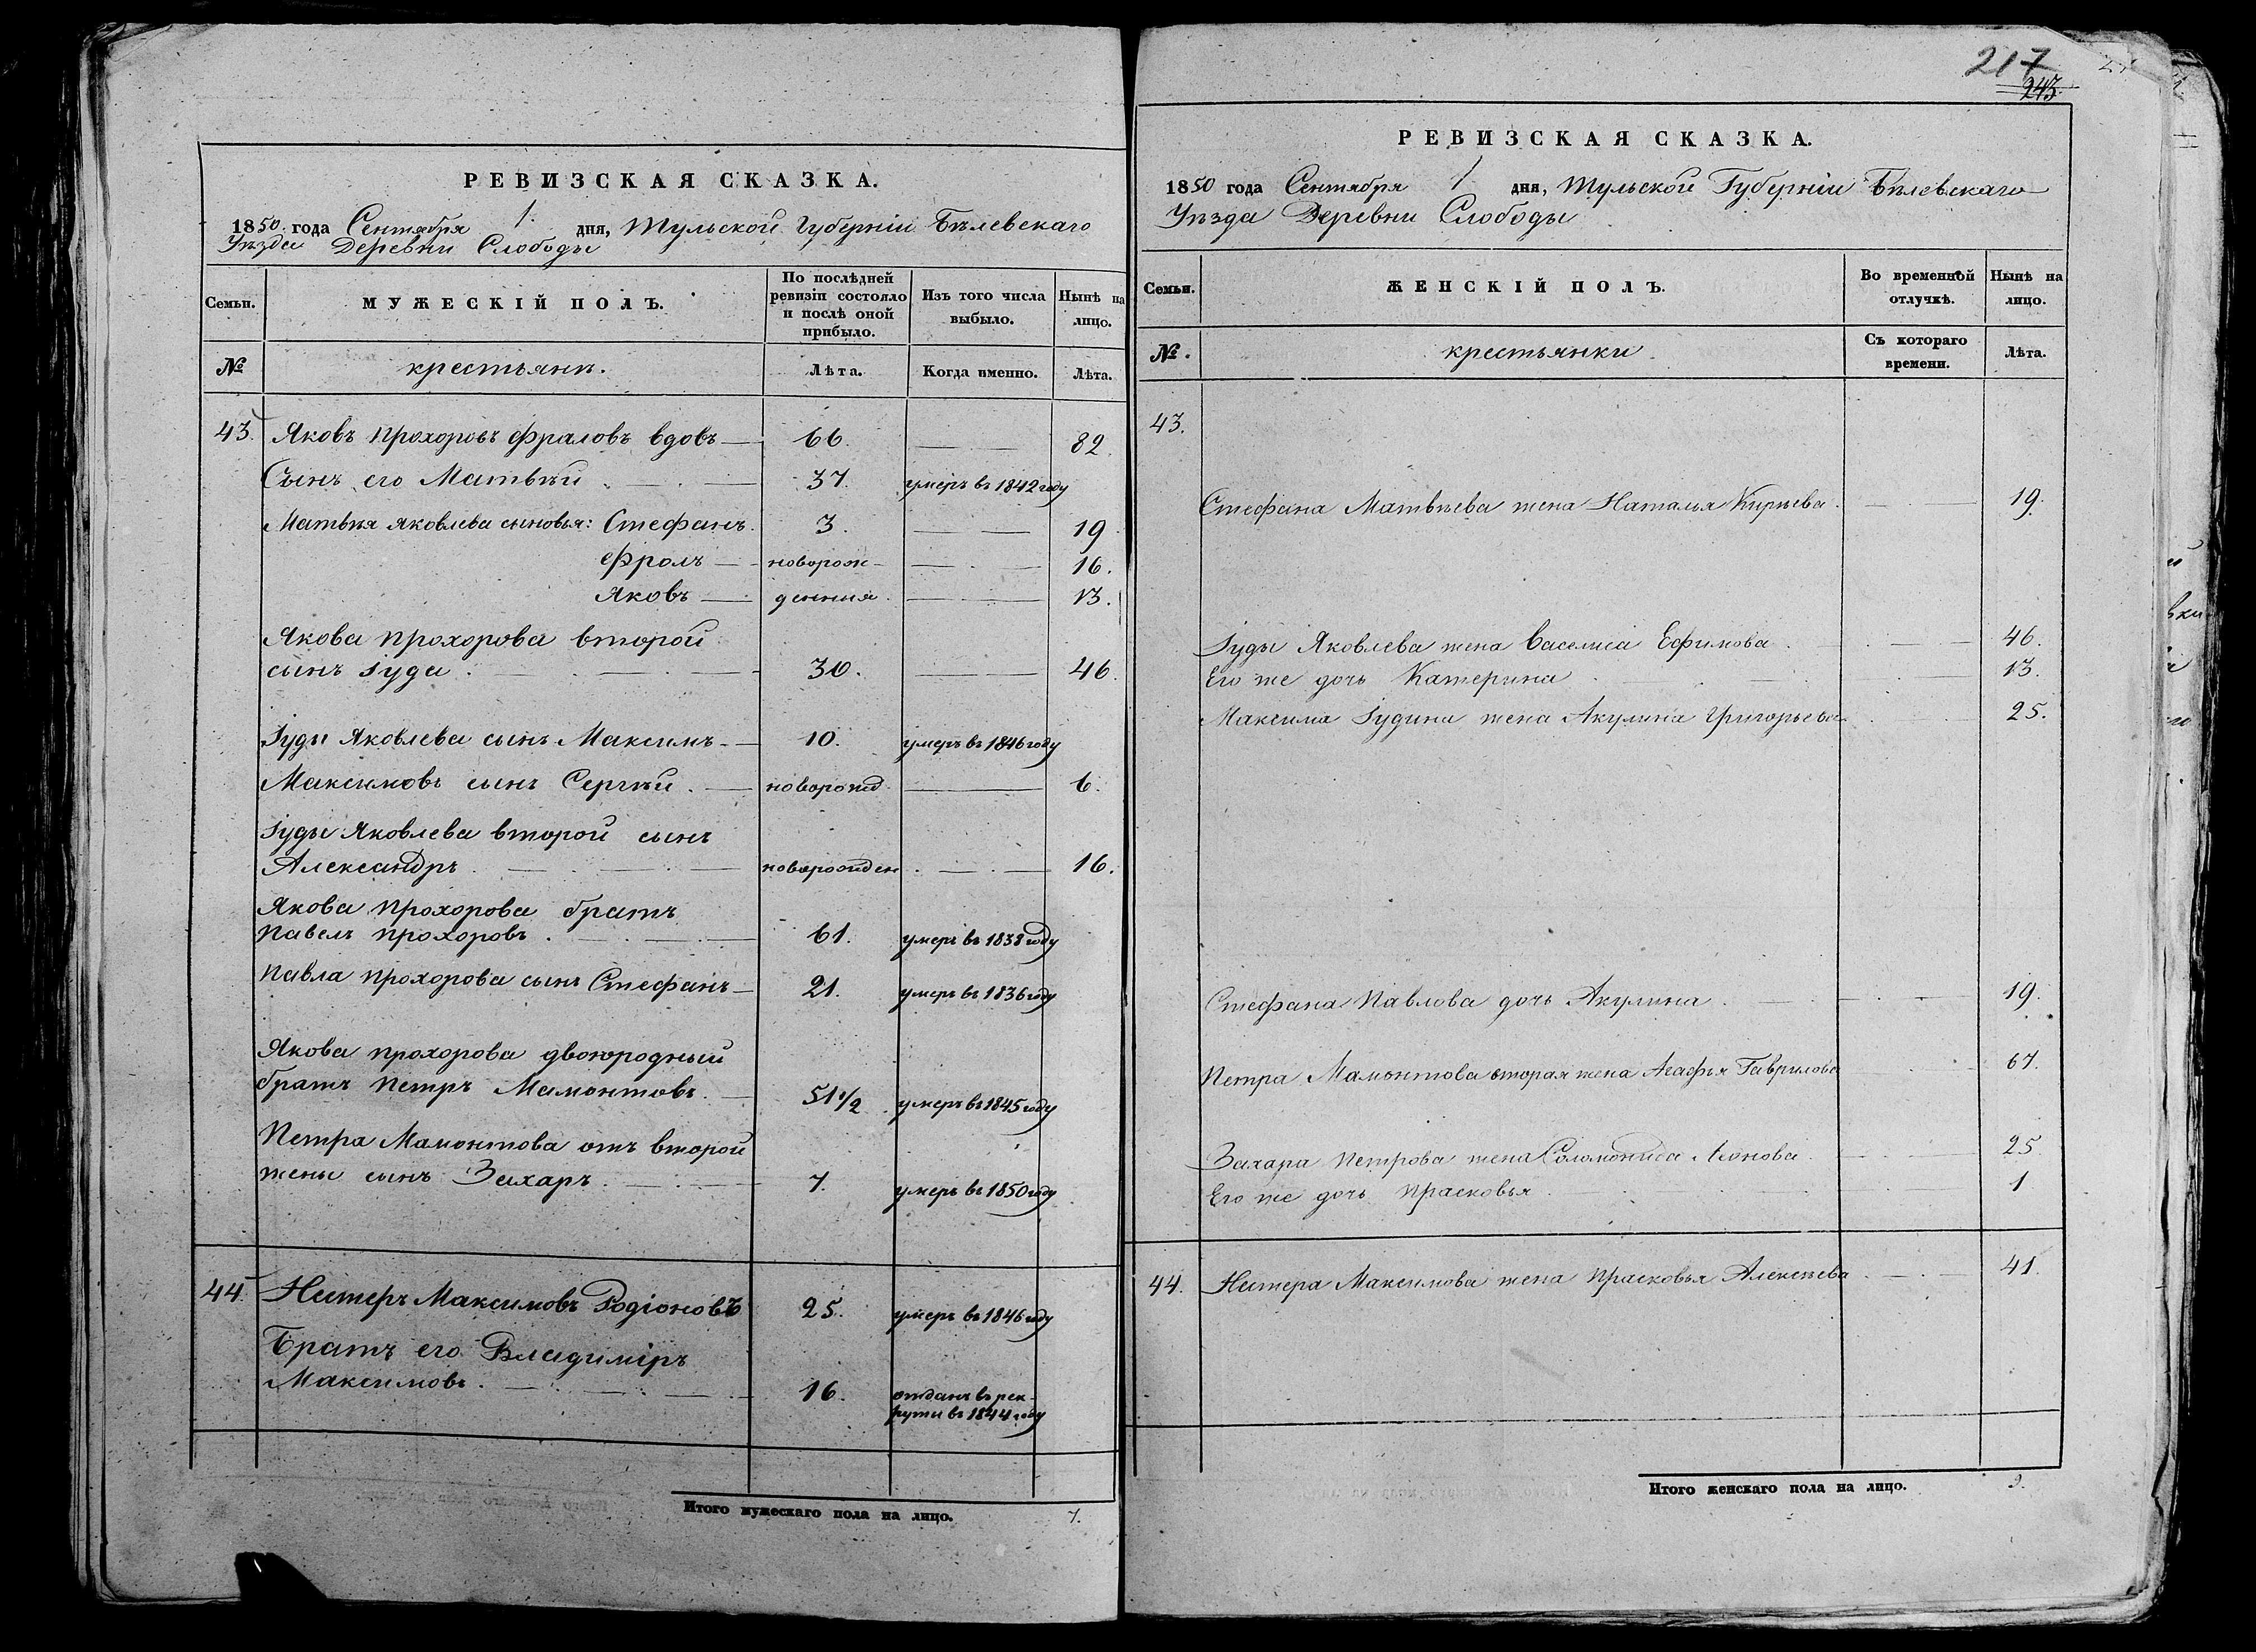 РЕВИЗСКАЯ СКАЗКА.
1850 года Сентября 1 дня, Тульской Губерніи Бѣлевскаго
Уѣзда Деревни Слободы
Семьи.
МУЖЕСКІЙ ПОЛЪ.
По послѣдней ревизіи состояло и послѣ оной прибыло.
Изъ того числа выбыло.
Нынѣ на лицо.
№
крестьянъ.
Лѣта.
Когда именно.
Лѣта.
43. Яковъ Прохоровъ Фраловъ вдовъ 66. 82.
Сынъ его Матвѣй 37. умеръ въ 1842 году
Матвѣя Яковлева сыновья: Стефанъ 3. 19
Фролъ новорож- 16.
Яковъ денныя 13.
Якова Прохорова второй
сынъ Іуда 30. 46.
Іуды Яковлева сынъ Максимъ 10. умеръ въ 1846 году
Максимовъ сынъ Сергѣй новорожд 6.
Іуды Яковлева второй сынъ
Александръ новорожден 16.
Якова Прохорова братъ
Павелъ Прохоровъ 61. умеръ въ 1838 году
Павла Прохорова сынъ Стефанъ 21. умеръ въ 1836 году
Якова Прохорова двоюродный
братъ Петръ Мамонтовъ 51 1/2 умеръ въ 1845 году
Петра Мамонтова отъ второй
жены сынъ Захаръ 7. умеръ въ 1850 году
44. Нестеръ Максимовъ Родіоновъ 25. умеръ въ 1846 году
Братъ его Владиміръ
Максимовъ 16. отданъ въ рек-
руты въ 1844 году
Итого мужескаго пола на лицо. 7.
217
243
РЕВИЗСКАЯ СКАЗКА.
1850 года Сентября 1 дня, Тульской Губерніи Бѣлевскаго
Уѣзда Деревни Слободы
Семьи.
ЖЕНСКІЙ ПОЛЪ.
Во временной отлучкѣ.
Нынѣ на лицо.
№.
крестьянки
Съ котораго времени.
Лѣта.
43.
Стефана Матвѣева жена Наталья Кирѣева 19.
Іуды Яковлева жена Василиса Ефимова 46.
Его же дочь Катерина 13.
Максима Іудина жена Акулина Григорьева 25.
Стефана Павлова дочь Акулина 19.
Петра Мамонтова вторая жена Агафья Гаврилова 67.
Захара Петрова жена Соломонида Леонова 25
Его же дочь Прасковья 1
44. Нестера Максимова жена Прасковья Алексѣева 41.
Итого женскаго пола на лицо. 9.